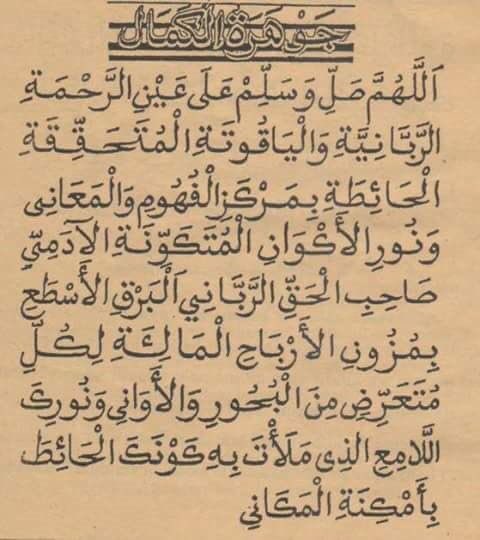 جَوْهَرَةُ الْكَمَالِ
اَللَّهُمَّ صَلِّ وَسَلِّمْ عَلَى عَيْنِ الرَّحْمَةِ
الرَّبَّانِيَّةِ وَالْيَاقُوتَةِ الْمُتَحَقِّقَةِ
الْحَائِطَةِ بِمَرْكَزِ الْفُهُومِ وَالْمَعَانِى
وَنُورِ الأَكْوَانِ الْمُتَكَوِّنَةِ الآدَمِيِّ
صَاحِبِ الْحَقِّ الرَّبَّانِي اَلْبَرْقِ الأَسْطَعِ
بِمُزُونِ الأَرْبَاحِ الْمَالِئَةِ لِكُلِّ
مُتَعَرِّضٍ مِنَ الْبُحُورِ وَالأَوَانِى وَنُورِكَ
اللَّامِعِ الَّذِى مَلَأْتَ بِهِ كَوْنَكَ الْحَائِطَ
بِأَمْكِنَةِ الْمَكَانِي